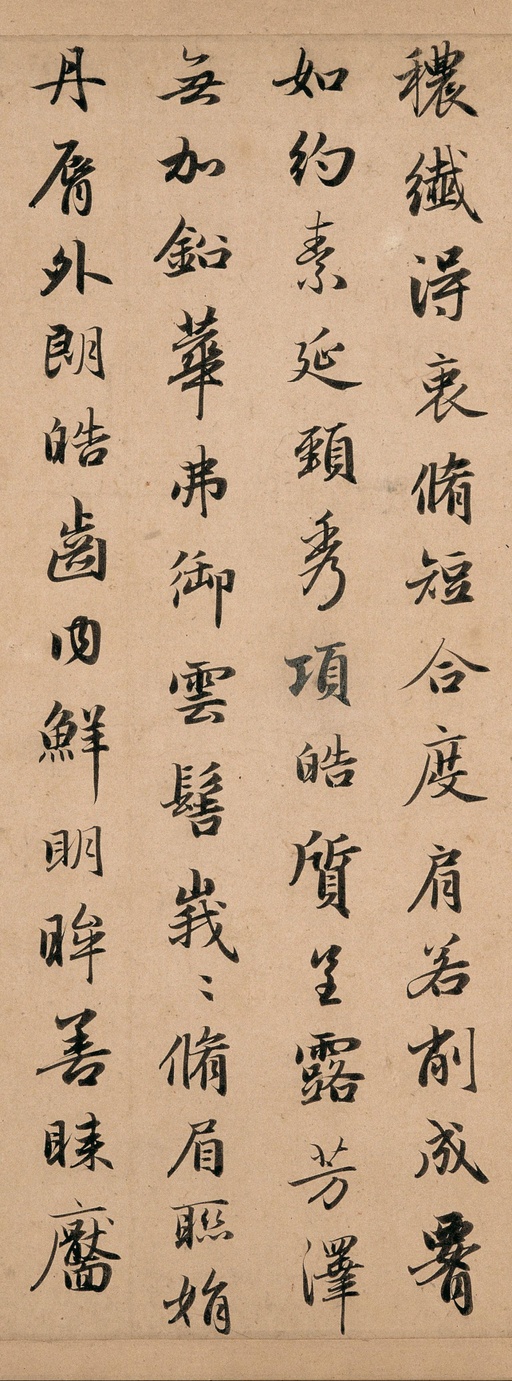 穠纖得衷脩短合度肩若削成署
如約素延頸秀項皓質呈露芳澤
無加鉛華弗御雲髻峩〻脩眉聯娟
丹脣外朗皓齒内鮮明眸善睞靨